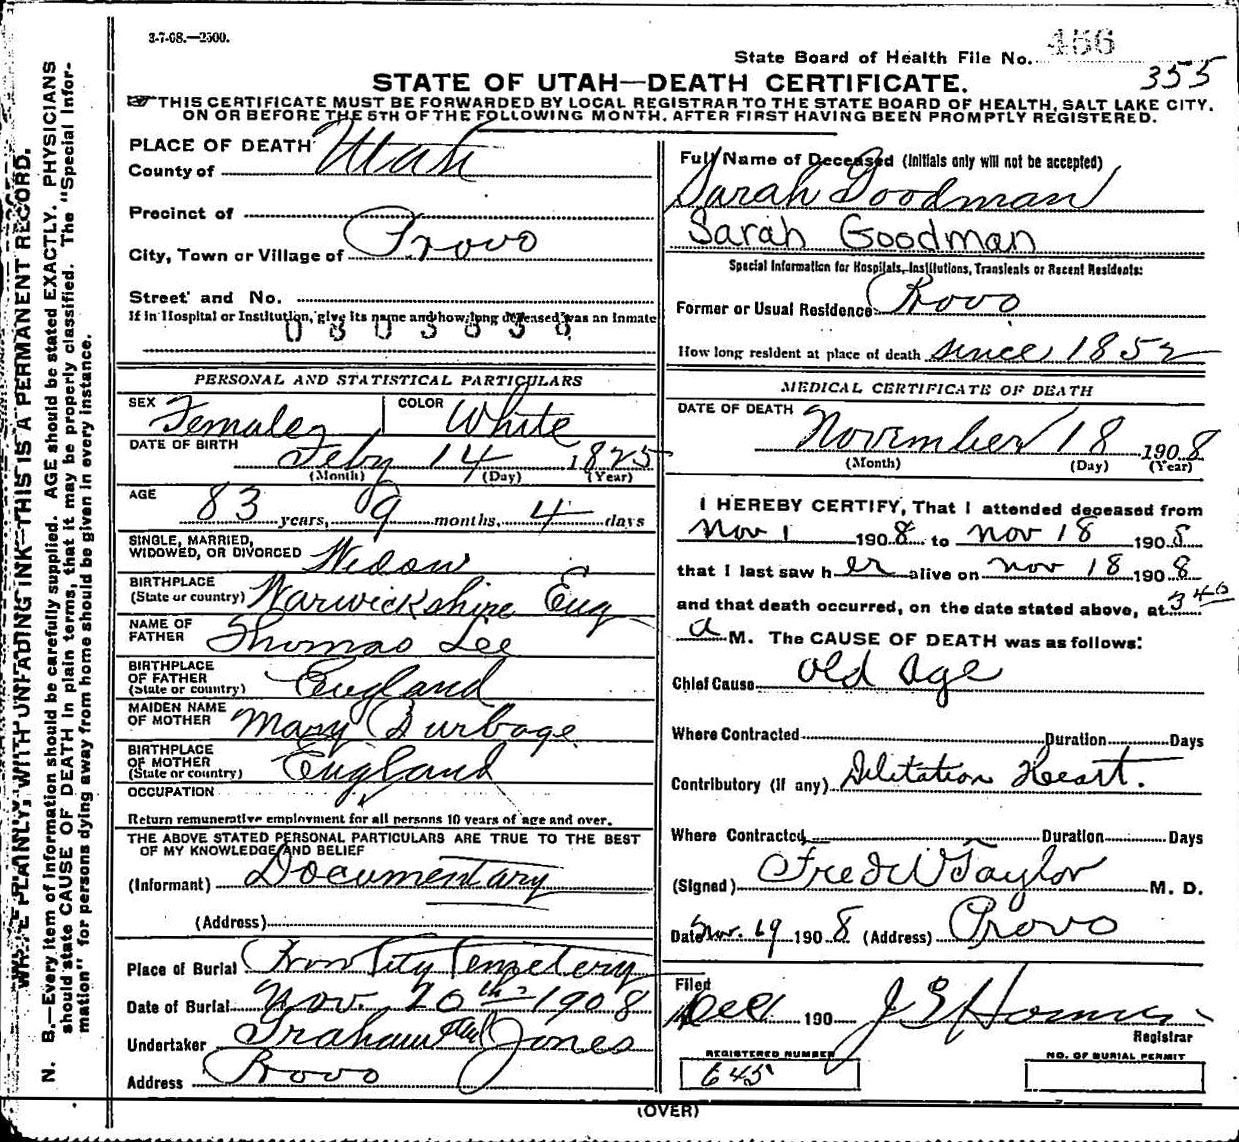 3-7-08.—2500.
State Board of Health File No. 466
355
STATE OF UTAH—DEATH CERTIFICATE.
THIS CERTIFICATE MUST BE FORWARDED BY LOCAL REGISTRAR TO THE STATE BOARD OF HEALTH, SALT LAKE CITY,
ON OR BEFORE THE 5TH OF THE FOLLOWING MONTH, AFTER FIRST HAVING BEEN PROMPTLY REGISTERED.
WRITE PLAINLY, WITH UNFADING INK—THIS IS A PERMANENT RECORD.
N. B.—Every item of information should be carefully supplied. AGE should be stated EXACTLY. PHYSICIANS
should state CAUSE OF DEATH in plain terms, that it may be properly classified. The "Special Infor-
mation" for persons dying away from home should be given in every instance.
PLACE OF DEATH
County of Utah
Precinct of
City, Town or Village of Provo
Street and No.
If in Hospital or Institution, give its name and how long deceased was an Inmate
0803838
PERSONAL AND STATISTICAL PARTICULARS
SEX Female COLOR White
DATE OF BIRTH Feby 14 1825
(Month) (Day) (Year)
AGE 83 years, 9 months, 4 days
SINGLE, MARRIED,
WIDOWED, OR DIVORCED Widow
BIRTHPLACE
(State or country) Warwickshire Eng
NAME OF
FATHER Thomas Lee
BIRTHPLACE
OF FATHER
(State or country) England
MAIDEN NAME
OF MOTHER Mary Burbage
BIRTHPLACE
OF MOTHER
(State or country) England
OCCUPATION
Return remunerative employment for all persons 10 years of age and over.
THE ABOVE STATED PERSONAL PARTICULARS ARE TRUE TO THE BEST
OF MY KNOWLEDGE AND BELIEF
(Informant) Documentary
(Address)
Place of Burial Provo City Cemetery
Date of Burial Nov. 20th 1908
Undertaker Graham Jones
Address Provo
Full Name of Deceased (Initials only will not be accepted)
Sarah Goodman
Sarah Goodman
Special Information for Hospitals, Institutions, Transients or Recent Residents:
Former or Usual Residence Provo
How long resident at place of death since 1852
MEDICAL CERTIFICATE OF DEATH
DATE OF DEATH November 18 1908
(Month) (Day) (Year)
I HEREBY CERTIFY, That I attended deceased from
Nov 1 1908 to Nov 18 1908
that I last saw her alive on Nov 18 1908
and that death occurred, on the date stated above, at 3 40
a M. The CAUSE OF DEATH was as follows:
Chief Cause Old Age
Where Contracted Duration Days
Contributory (if any) Dilitation Heart.
Where Contracted Duration Days
(Signed) Fred W Taylor M. D.
Date Nov. 19 1908 (Address) Provo
Filed
Dec 1 190 Registrar
REGISTERED NUMBER
645
NO. OF BURIAL PERMIT
(OVER)